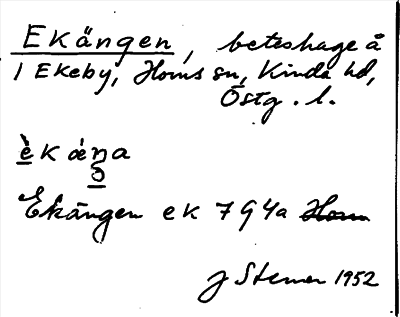 Ekängen, beteshage å
1 Ekeby, Horns sn, Kinda hd,
Östg. l.
Ekängen ek 794a Horn
J Stemer 1952